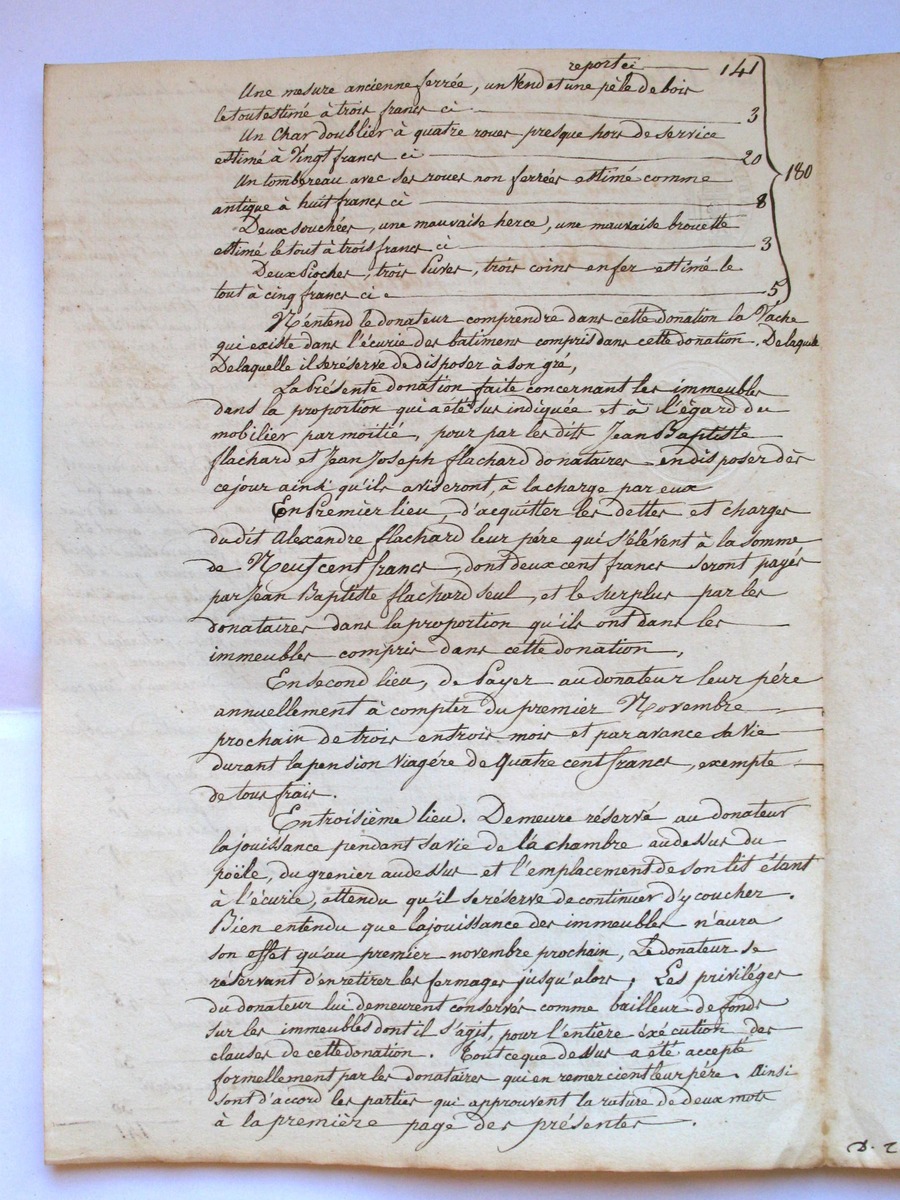 report ci — 141
Une mesure ancienne ferrée, un Vend et une pèle de bois
le tout estimé à trois francs ci — 3
Un char doublier à quatre roues presque hors de service
estimé à Vingt francs ci — 20
180
Un tombereau avec ses roues non ferrées estimé comme
antique à huit francs ci — 8
Deux souchées, une mauvaise herce, une mauvaise brouette
estimé le tout à trois francs ci — 3
Deux Pioches, trois, trois coins en fer estimé le
tout à cinq francs ci — 5
N'entend le donateur comprendre dans cette donation la Vache
qui existe dans l'écurie des batimens compris dans cette donation. De laquelle
De laquelle il se réserve de disposer à son gré,
La Présente donation faite concernant les immeubles
dans la proportion qui a été sus indiquée et à l'égard du
mobilier par moitié, pour par les dits Jean Baptiste
flachard et Jean Joseph flachard donataires en disposer dès
ce jour ainsi qu'ils aviseront, à la charge par eux
En Premier lieu, d'acquitter les dettes et charges
du dit Alexandre flachard leur pére qui s'élèvent à la somme
de Neuf cent francs, dont deux cent francs seront payés
par Jean Baptiste flachard seul, et le surplus par les
donataires dans la proportion qu'ils ont dans les
immeubles compris dans cette donation,
En second lieu, de Payer au donateur leur pére
annuellement à compter du premier Novembre
prochain de trois en trois mois et par avance sa Vie
durant la pension Viagére de Quatre cent francs, exempte
de tous frais.
En troisième lieu. Demeure réservé au donateur
la jouissance pendant sa vie de la chambre au dessus du
poële, du grenier au dessus et l'emplacement de son lit étant
à l'écurie, attendu qu'il se réserve de continuer d'y coucher.
Bien entendu que la jouissance des immeubles n'aura
son effet qu'au premier novembre prochain, Le donateur se
réservant d'en retirer les fermages jusqu'alors; Les priviléges
du donateur lui demeurent conservés comme bailleur de fonds
sur les immeubles dont il s'agit, pour l'entière exécution des
clauses de cette donation. Tout ce que dessus a été accepté
formellement par les donataires qui en remercient leur pére. Ainsi
sont d'accord les parties qui approuvent la rature de deux mots
à la première page des présentes.